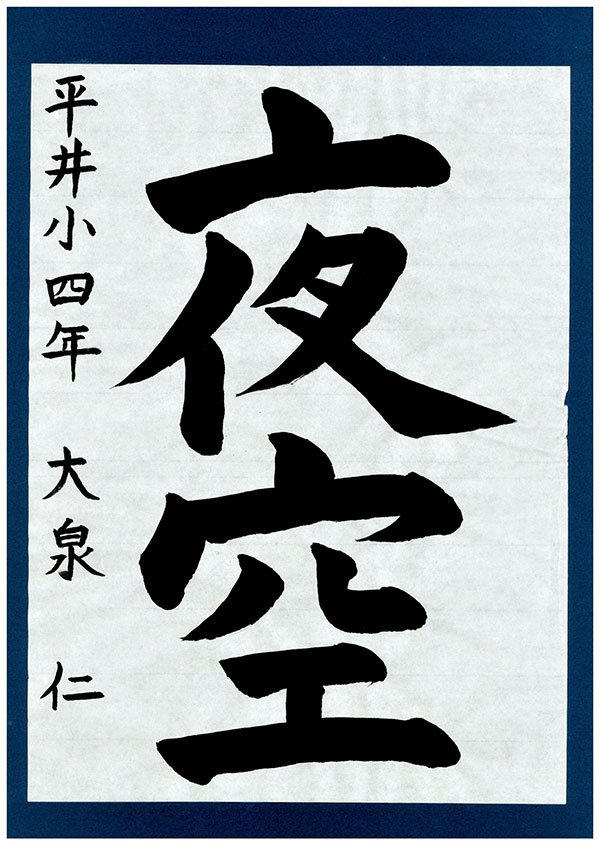 夜空
平井小四年 大泉 仁